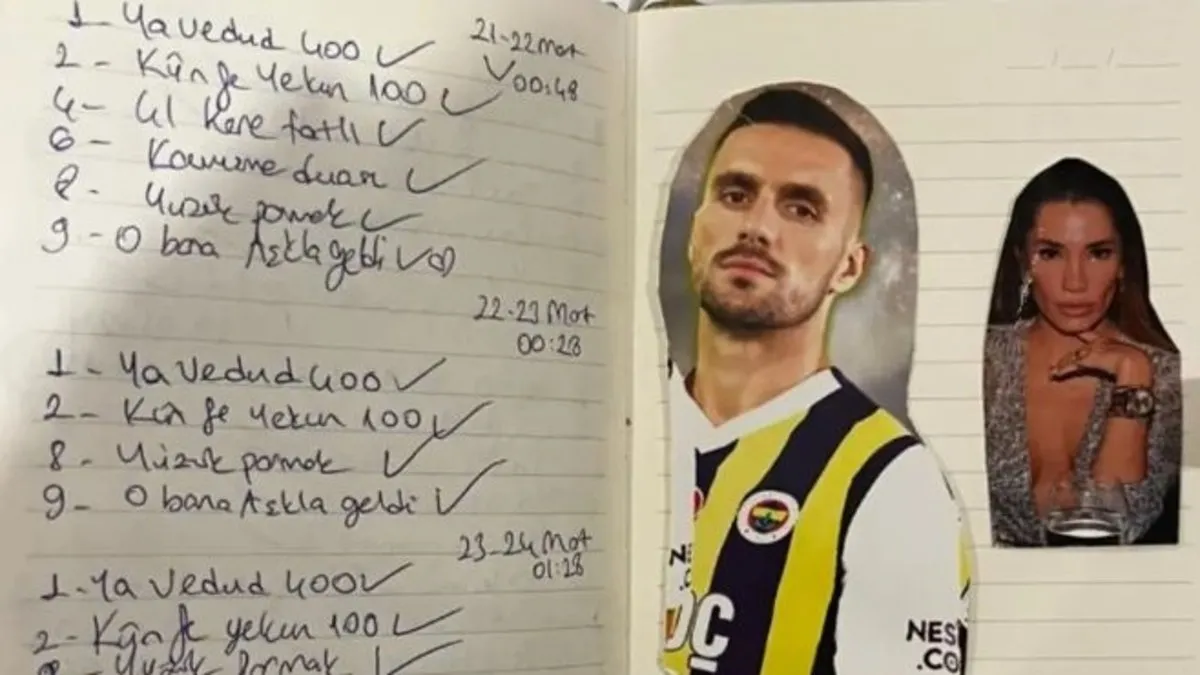 1 Ya Vedud 400 ✓
21-22 Mart
✓ 00:48
2 - Kün fe Yekun 100 ✓
4 - 41 kere fatlı ✓
6 - Kavuşme duası ✓
8 - Yüzük parmak ✓
9 - O bana Aşkla geldi ✓
22-23 Mart
00:28
1 - Ya Vedud 400 ✓
2 - Kün fe Yekun 100 ✓
8 - Yüzük parmak ✓
9 - O bana Aşkla geldi ✓
23-24 Mart
01:28
1 - Ya Vedud 400 ✓
2 - Kün fe yekun 100 ✓
Yüzük Parmak ✓
NES
.CO